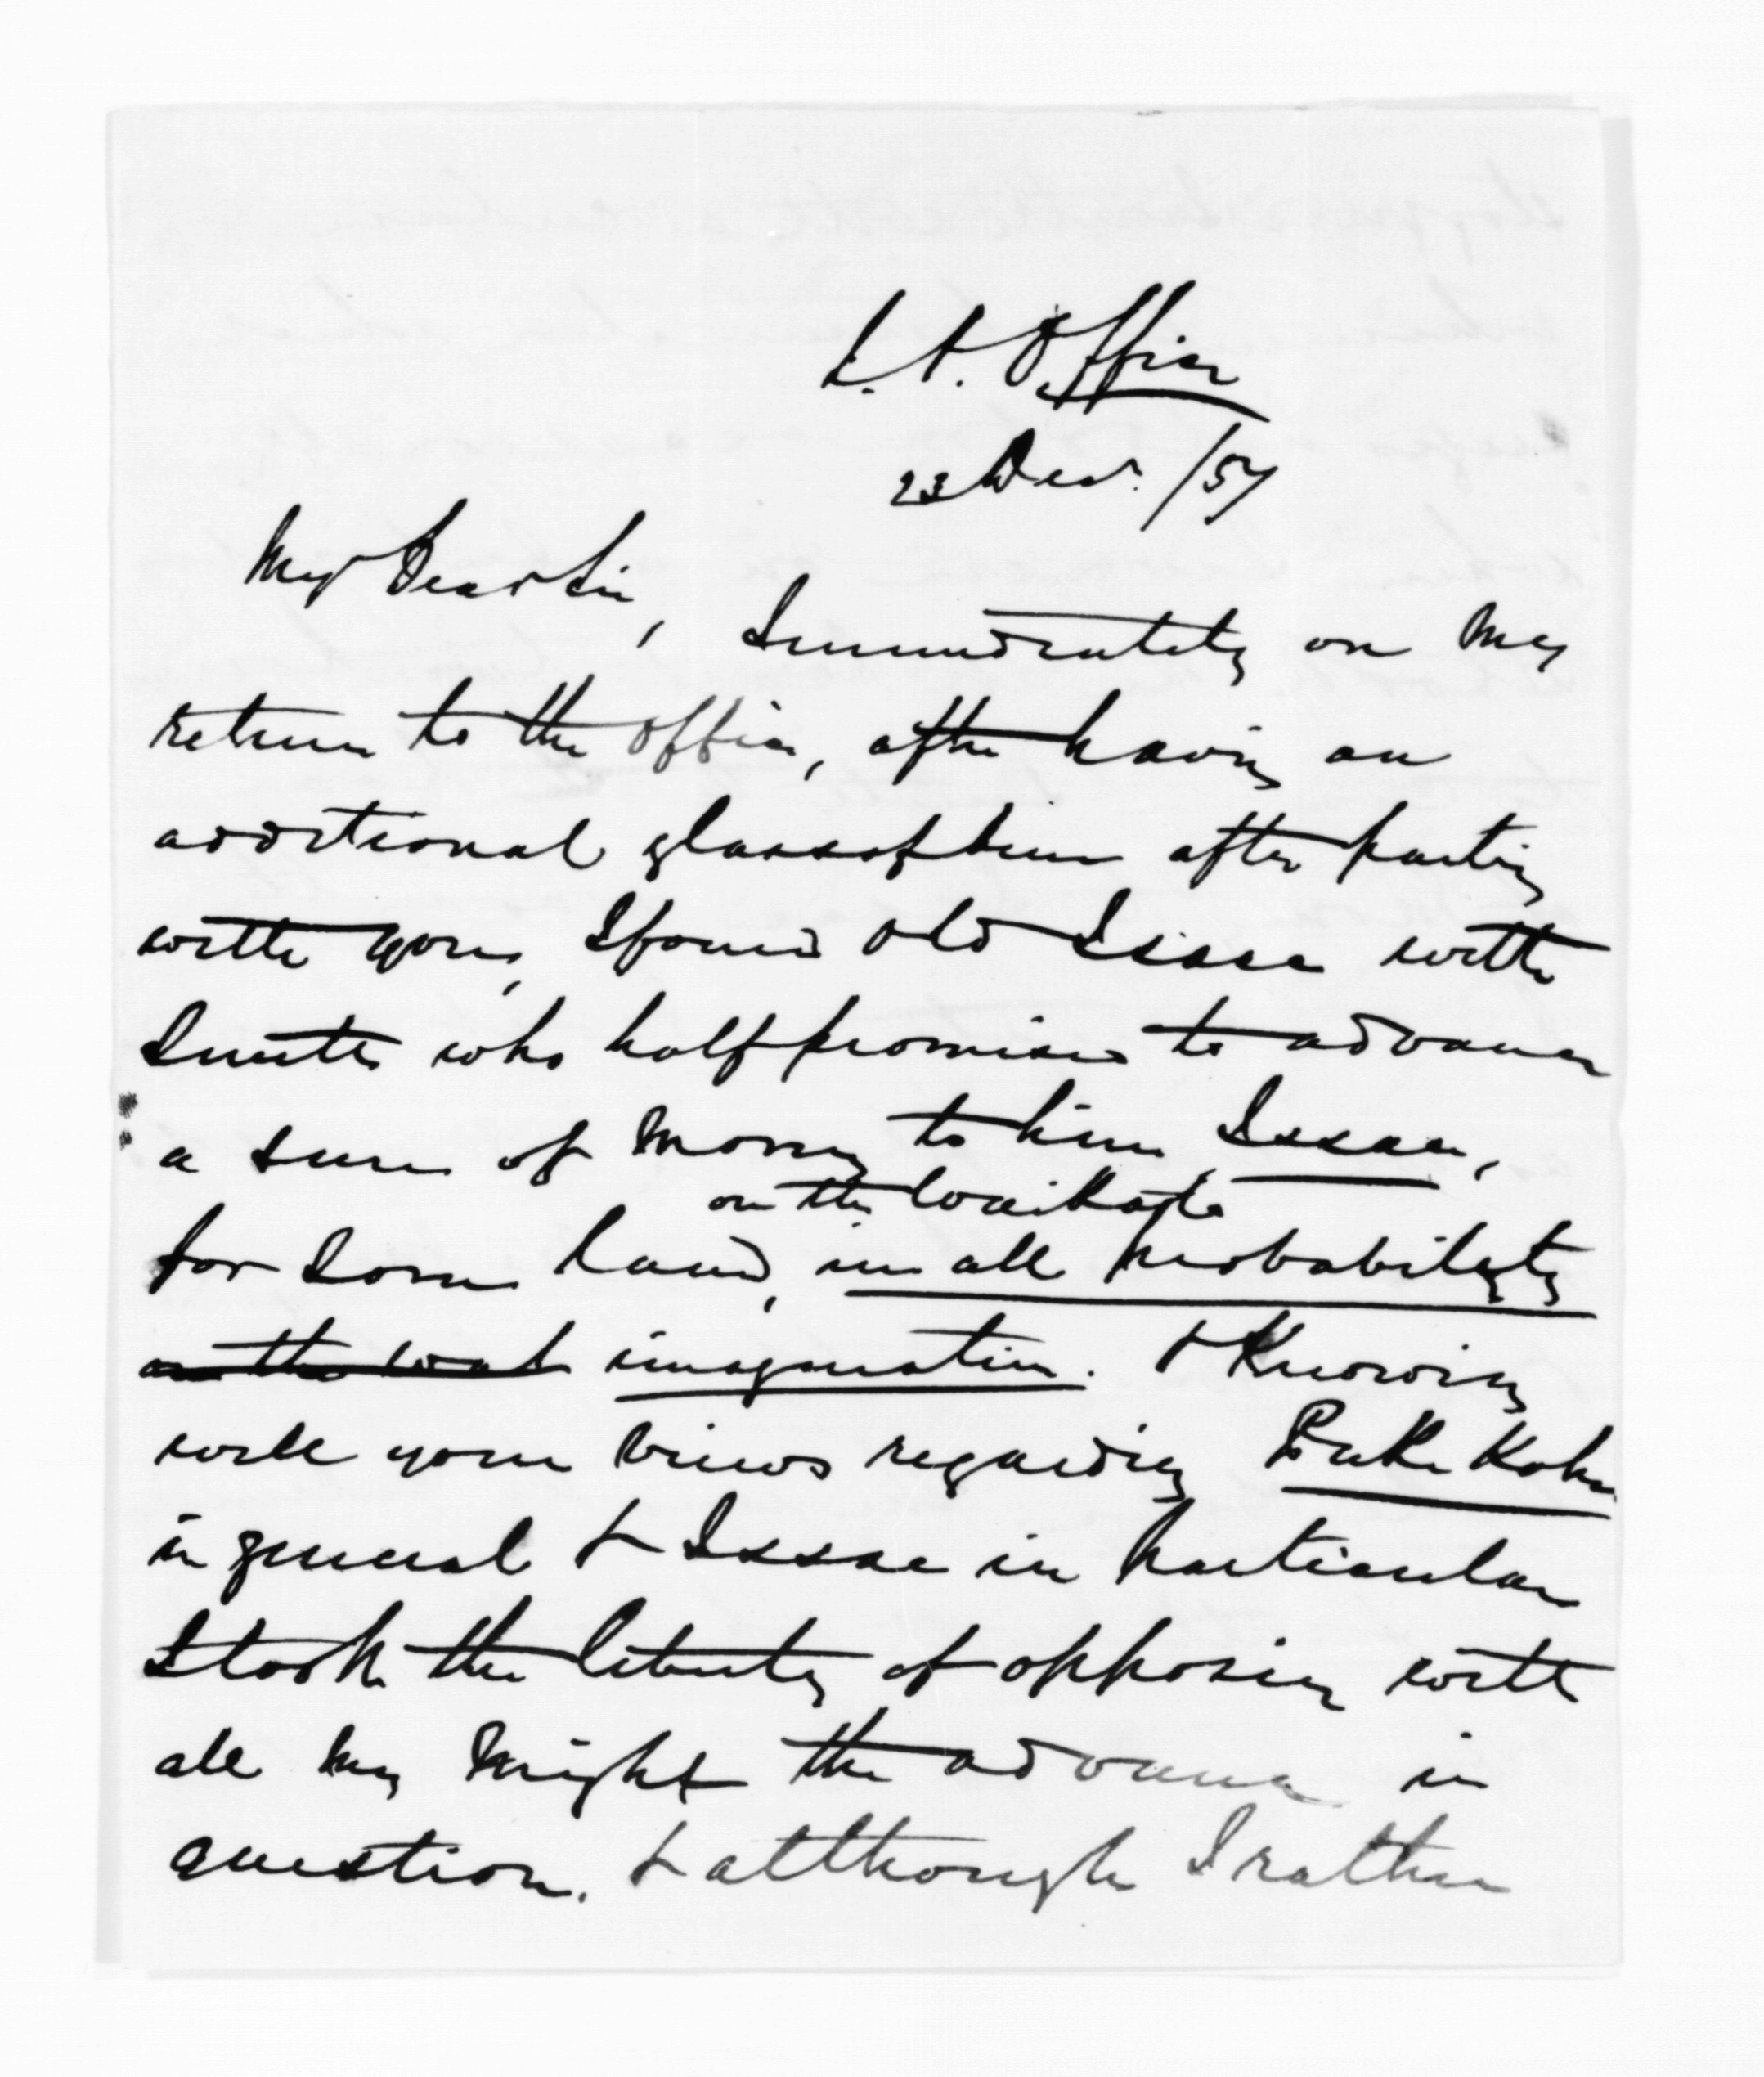 L. P. Office
23 Decr. /57
My Dear Sir,
Immediately on my
return to the office, after having an
additional glass of beer after parting
with you, I found old Isaac with
Smith who half promised to advance
a sum of money to him Isaac,
on the Waikato
for some land, in all probability
on the Wai imagination. & Knowing
well your views regarding Puke Kohe
in general & Isaac in particular
I took the liberty of opposing with
all my might the advance in
question. & although I rather